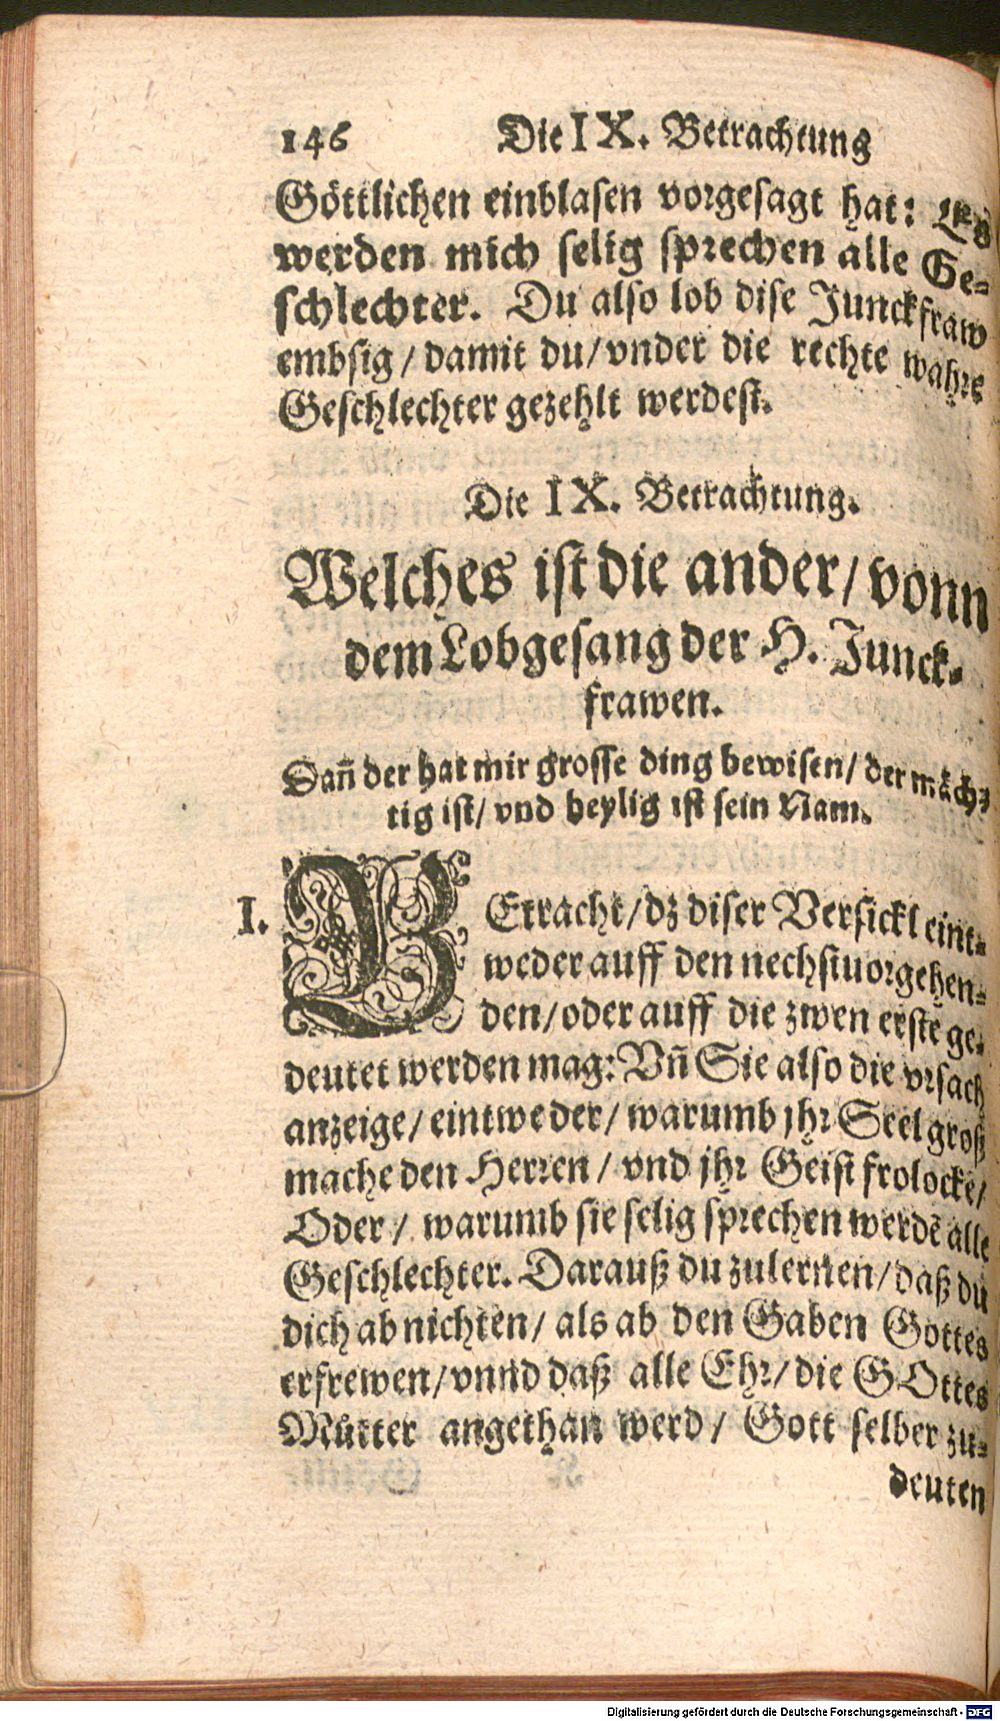 146 Die IX. Betrachtung
Göttlichen einblasen vorgesagt hat: Es
werden mich selig sprechen alle Ge-
schlechter. Du also lob dise Junckfraw
embsig/ damit du/ vnder die rechte wahre
Geschlechter gezehlt werdest.
Die IX. Betrachtung.
Welches ist die ander/ vonn
dem Lobgesang der H. Junck-
frawen.
Dañ der hat mir grosse ding bewisen/ der mäch-
tig ist/ vnd heylig ist sein Nam.
I. BEtracht/ dz diser Versickl eint-
weder auff den nechstuorgehen-
den/ oder auff die zwen erstẽ ge-
deutet werden mag: Vñ Sie also die vrsach
anzeige/ eintweder/ warumb jhr Seel groß
mache den Herren/ vnd jhr Geist frolocke/
Oder/ warumb sie selig sprechen werdẽ alle
Geschlechter. Darauß du zulernen/ daß du
dich ab nichten/ als ab den Gaben Gottes
erfrewen/ vnnd daß alle Ehr/ die GOttes
Můtter angethan werd/ Gott selber zu-
deuten
Digitalisierung gefördert durch die Deutsche Forschungsgemeinschaft - DFG